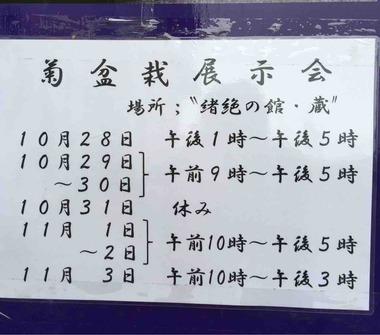 菊盆栽展示会
場所；〝緒絶の館・蔵〟
１０月２８日　午後１時～午後５時
１０月２９日
～３０日　午前９時～午後５時
１０月３１日　休み
１１月　１日
～２日　午前10時～午後５時
１１月　３日　午前10時～午後３時